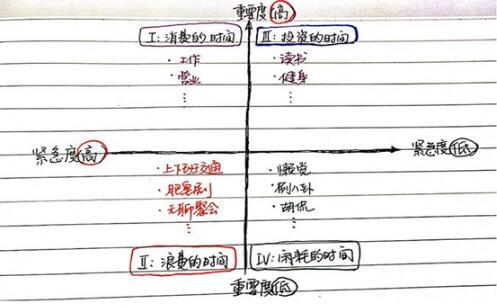 重要度高
I:消费的时间
·工作
·营业
⋮
III:投资的时间
·读书
·健身
⋮
紧急度高
紧急度低
·上下班交通
·肥皂剧
·无聊聚会
⋮
·懒觉
·刷八卦
·胡侃
⋮
II:浪费的时间
IV:消耗的时间
重要度低